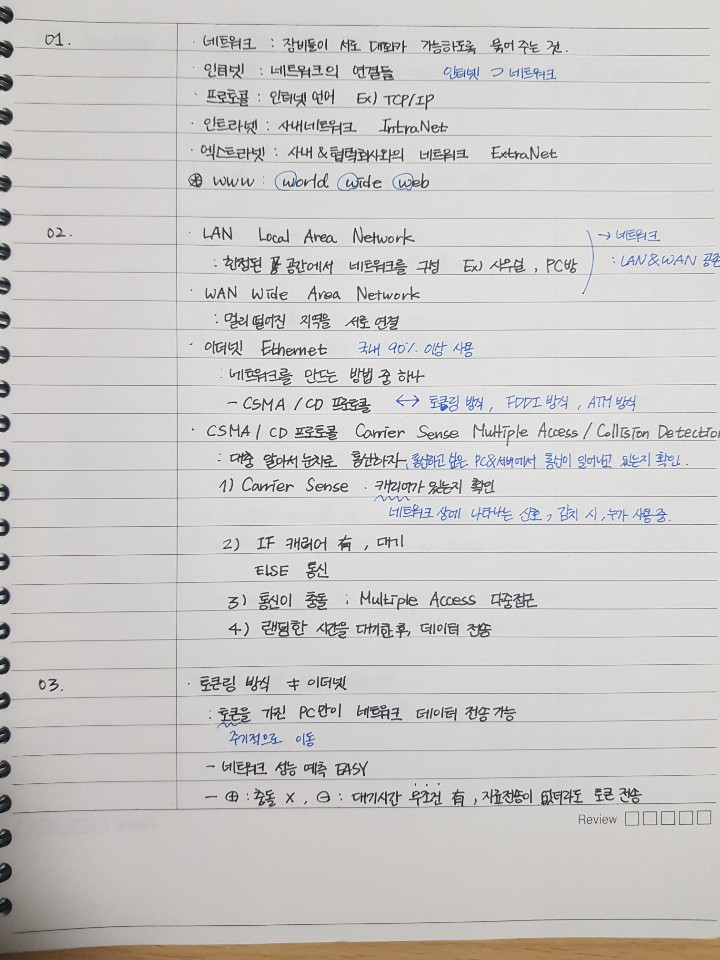 01.
· 네트워크 : 장비들이 서로 대화가 가능하도록 묶어 주는 것.
· 인터넷 : 네트워크의 연결들 인터넷 ⊃ 네트워크
· 프로토콜 : 인터넷 언어 Ex) TCP/IP
· 인트라넷 : 사내네트워크 IntraNet
· 엑스트라넷 : 사내 & 협력회사와의 네트워크 ExtraNet
⊛ www : World Wide Web
02.
· LAN Local Area Network → 네트워크
: 한정된 공간에서 네트워크를 구성 Ex) 사무실, PC방 : LAN & WAN 공존
· WAN Wide Area Network
: 멀리 떨어진 지역을 서로 연결
· 이더넷 Ethernet 국내 90% 이상 사용
: 네트워크를 만드는 방법 중 하나
- CSMA / CD 프로토콜 ↔ 토큰링 방식, FDDI 방식, ATM 방식
· CSMA / CD 프로토콜 Carrier Sense Multiple Access / Collision Detection
: 대충 알아서 눈치로 통신하자, 통신하고 싶은 PC&서버에서 통신이 일어나고 있는지 확인.
1) Carrier Sense : 캐리어가 있는지 확인
네트워크 상에 나타나는 신호, 감지 시, 누가 사용 중.
2) IF 캐리어 有, 대기
ELSE 통신
3) 통신이 충돌 ; Multiple Access 다중접근
4) 랜덤한 시간을 대기한 후, 데이터 전송
03.
· 토큰링 방식 ≠ 이더넷
: 토큰을 가진 PC만이 네트워크 데이터 전송 가능
주기적으로 이동
- 네트워크 성능 예측 EASY
- ⊕ : 충돌 X, ⊖ : 대기시간 무조건 有, 자료전송이 없더라도 토큰 전송
Review